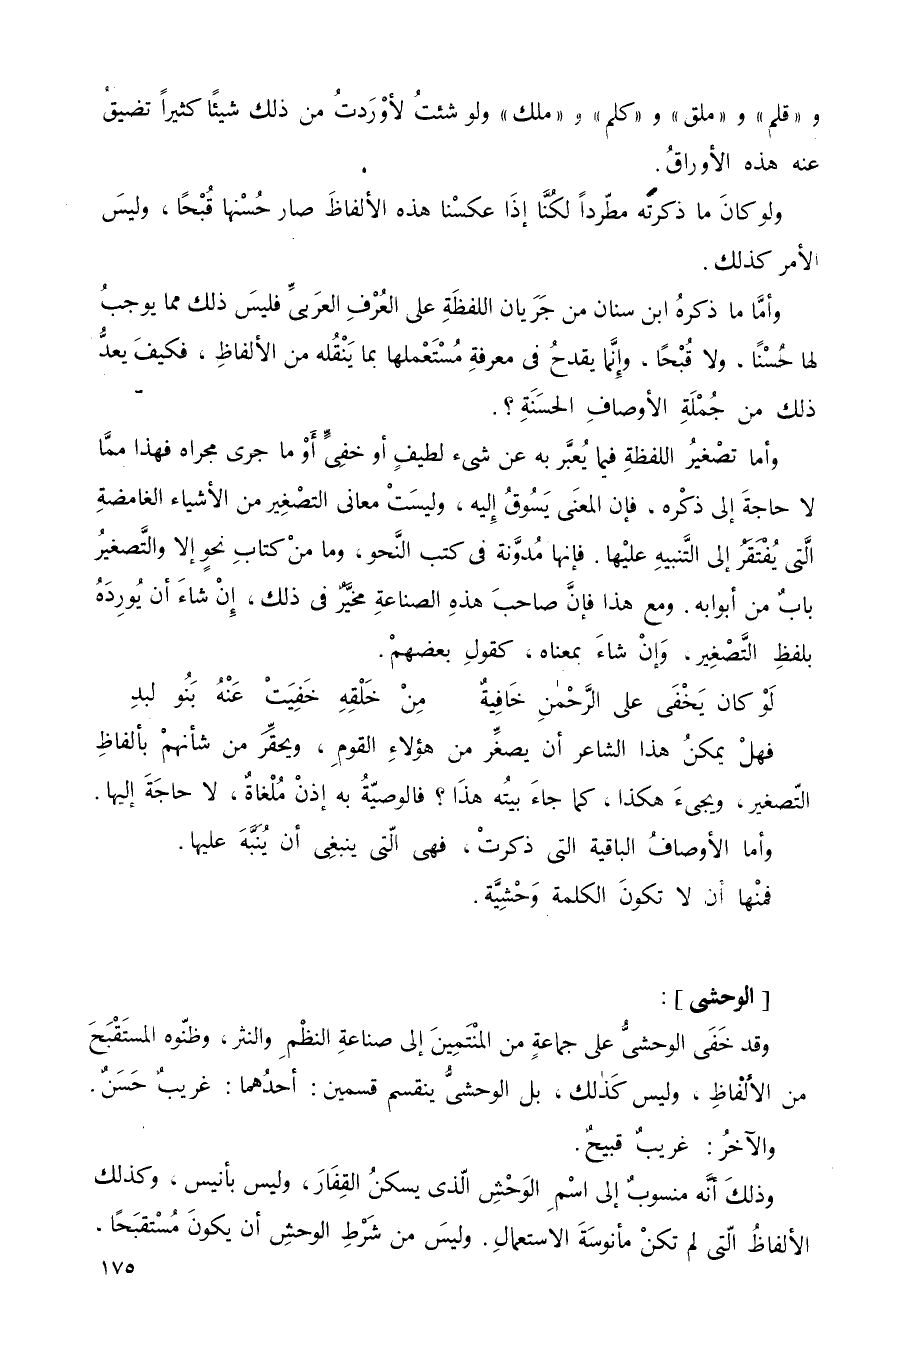 و «قلم» و «ملق» و «كلم» و «ملك» ولو شئتُ لأوْرَدتُ من ذلك شيئًا كثيراً تضيقُ
عنه هذه الأوراقُ .
ولو كانَ ما ذكرته مطّرداً لكُنَّا إذَا عكسْنا هذه الألفاظَ صار حُسْنها قُبْحًا ، وليسَ
الأمر كذلك .
وأمَّا ما ذكرهُ ابن سنان من جَرَيان اللفظَةِ على العُرْفِ العرَبىِّ فليسَ ذلك مما يوجبُ
لها حُسْنًا . ولا قُبْحًا . وإنَّما يقدحُ فى معرفةِ مُسْتَعْملها بما يَنْقُله من الألفاظِ ، فكيفَ يعدُّ
ذلك من جُمْلَةِ الأوصافِ الحسَنَةِ ؟ .
وأما تصْغيرُ اللفظةِ فيما يُعبَّر به عن شىء لطيفٍ أو خفىٍّ أَوْ ما جرى مجراه فهذا ممَّا
لا حاجةَ إلى ذكْره . فإن المعنَى يَسُوقُ إليه ، وليسَتْ معانى التصْغِير من الأشياء الغامضةِ
الَّتى يُفْتَقَرُ إلى التَّنبيهِ عليْها . فإنها مُدوَّنة فى كتب النَّحو ، وما منْ كتابِ نحوٍ إلا والتَّصغيرُ
بابٌ من أبوابه . ومع هذا فإنَّ صاحبَ هذهِ الصناعةِ مخيَّرٌ فى ذلك ، إِنْ شاءَ أن يُورِدَهُ
بلفظِ التَّصْغِير ، وَإنْ شاءَ بمعناه ، كقولِ بعضهمْ .
لَوْ كان يَخْفَى على الرَّحْمٰنِ خَافِيةٌ مِنْ خَلْقِهِ خَفِيَتْ عَنْهُ بَنُو لبدِ
فهلْ يمكنُ هذا الشاعر أن يصغِّر من هؤلاءِ القومِ ، ويحقِّرَ من شأنهمْ بألفاظِ
التّصغير ، ويجىءَ هكذا ، كما جاءَ بيتُه هذَا ؟ فالوصيّةُ به إذنْ مُلْغاةٌ ، لا حاجَةَ إليها .
وأما الأوصافُ الباقية التى ذكرتْ ، فهى الّتى ينبغِى أن يُنَبَّهَ عليها .
فمنْها أن لا تكونَ الكلمة وَحْشِيَّة .
[ الوحشى ] :
وقد خَفَى الوحشىُّ على جماعةٍ من المُنْتَمِينَ إلى صناعةِ النظْمِ والنثر ، وظنّوه المستَقْبَحَ
من الألْفاظِ ، وليس كَذٰلك ، بل الوحشىُّ ينقسم قسمين : أحدُهما : غريبٌ حَسَنٌ .
والآخرُ : غريبٌ قبيحٌ .
وذلكَ أنَّه منسوبٌ إلى اسْمِ الوَحْشِ الّذى يسكنُ القِفَارَ ، وليس بأنيس ، وكذلك
الألفاظُ الّتى لم تكنْ مأنوسَةَ الاستعمالِ . وليسَ من شَرْطِ الوحشِ أن يكونَ مُسْتقبَحًا .
١٧٥